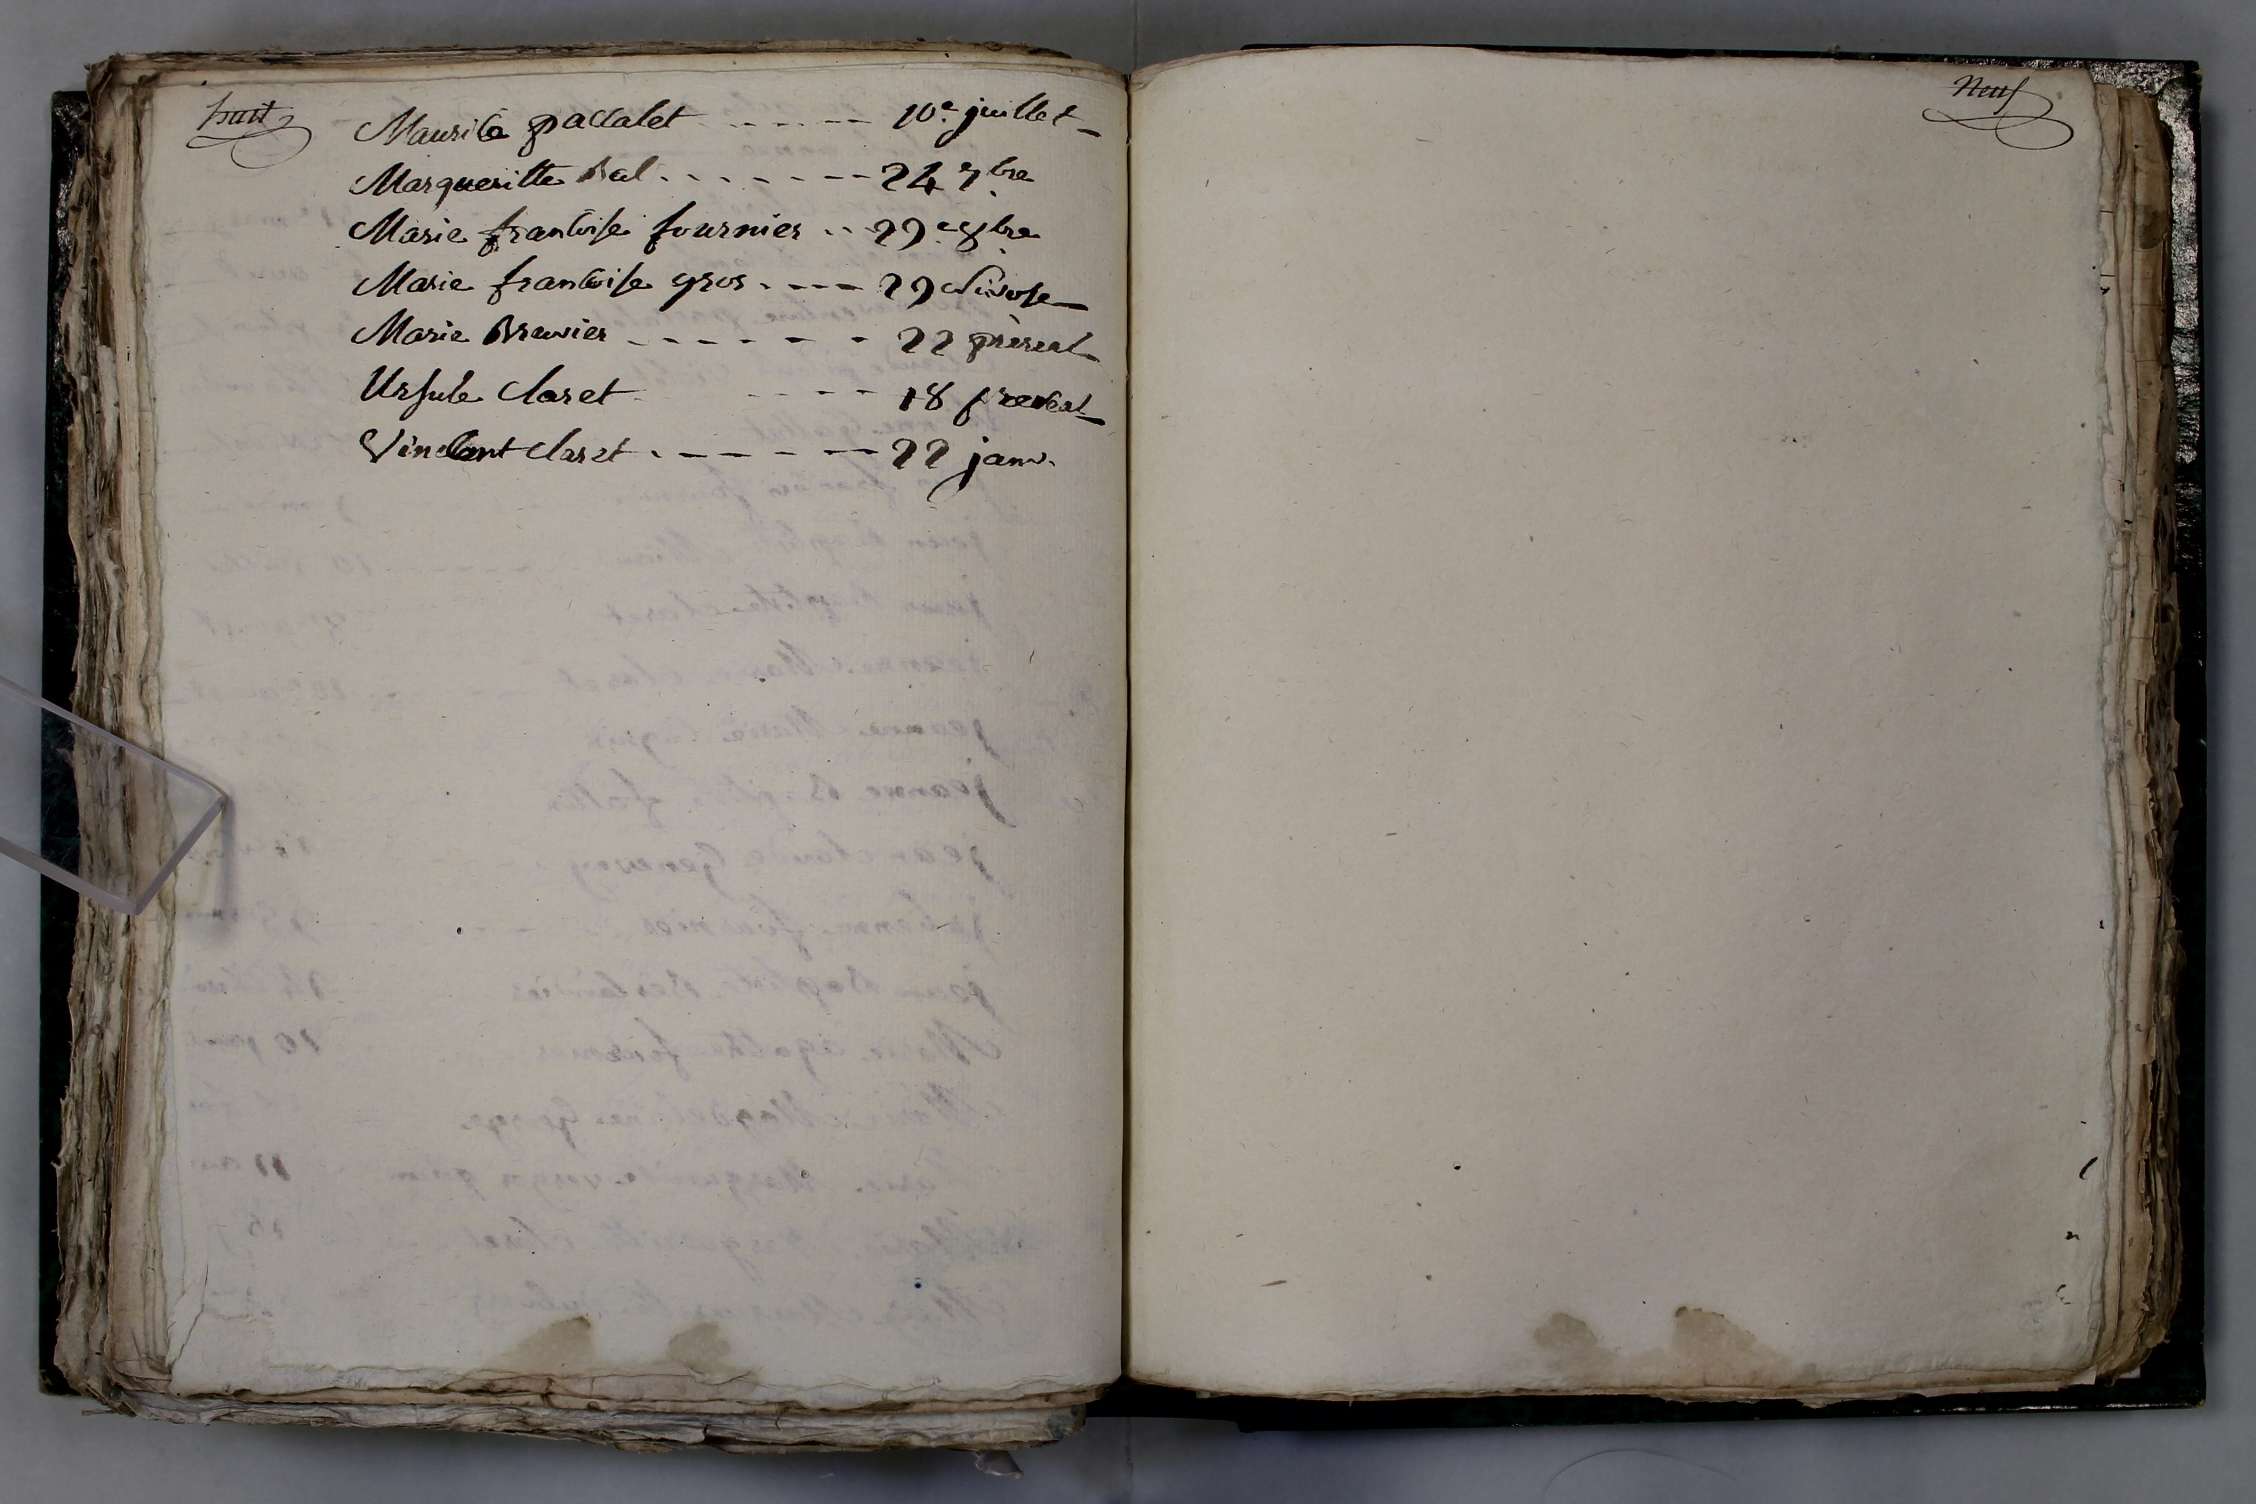 huit
Maurice paccalet - - - - - 10e juillet
Margueritte Bal - - - - - - - 24 7bre
Marie francoise fournier - - 29e 8bre
Marie francoise gros - - - - 29 Nivose
Marie Brunier - - - - - - 22 prereal
Ursule Claret - - - - 18 prereal
Vincent Claret - - - - - - 22 janv.
Neuf